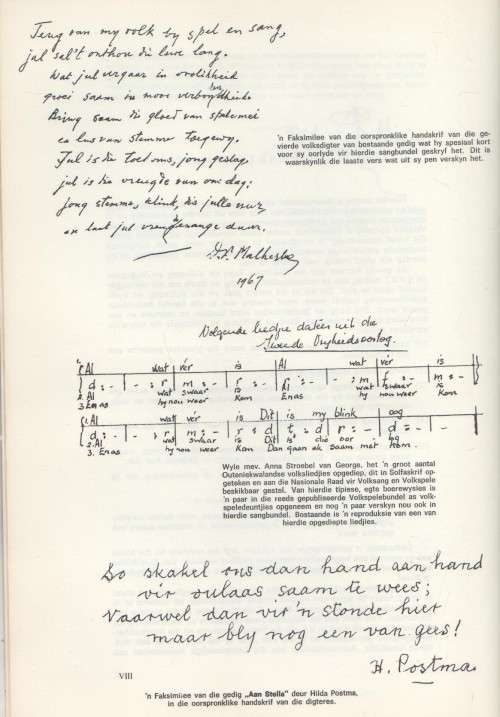 Teug van my volk by spel en sang,
jul sal't onthou die lewe lang.
Wat jul vergaar in vrolikheid
groei saam in mooi verbondenheid.
Bring saam die gloed van
en lus van stemme toegewy.
Jul is die toekoms, jong geslag,
jul is die vreugde van ons dag:
jong stemme, klink, dis julle uur,
en laat jul vreugdesange duur.
D.F. Malherbe
1967
'n Faksimilee van die oorspronklike handskrif van die ge-
vierde volksdigter van bostaande gedig wat hy spesiaal kort
voor sy oorlyde vir hierdie sangbundel geskryf het. Dit is
waarskynlik die laaste vers wat uit sy pen verskyn het.
Volgende liedjie dateer uit die
Tweede Vryheidsoorlog.
1. Al wat vér is Al wat vér is
d :- | - : r | m :- | r : r | r :- | - : m | f :- | m :-
2. Al wat swaar is Al wat swaar is
3. En as hy nou weer Kom En as hy nou weer Kom
1. Al wat vér is Dit is my blink oog
d :- | - : r | m :- | r : d | t : d | r :- | d :- | - :-
2. Al wat swaar is Dit is die oor bog
3. En as hy nou weer Kom Dan gaan ek saam met Kom
Wyle mev. Anna Stroebel van George, het 'n groot aantal
Outeniekwalandse volksliedjies opgediep, dit in Solfaskrif op-
geteken en aan die Nasionale Raad vir Volksang en Volkspele
beskikbaar gestel. Van hierdie tipiese, egte boerewysies is
'n paar in die reeds gepubliseerde Volkspelebundel as volk-
speledeuntjies opgeneem en nog 'n paar verskyn nou ook in
hierdie sangbundel. Bostaande is 'n reproduksie van een van
hierdie opgediepte liedjies.
So skakel ons dan hand aan hand
vir oulaas saam te wees;
Vaarwel dan vir 'n stonde hier
maar bly nog een van gees!
H. Postma
VIII
'n Faksimilee van die gedig „Aan Stella" deur Hilda Postma,
in die oorspronklike handskrif van die digteres.